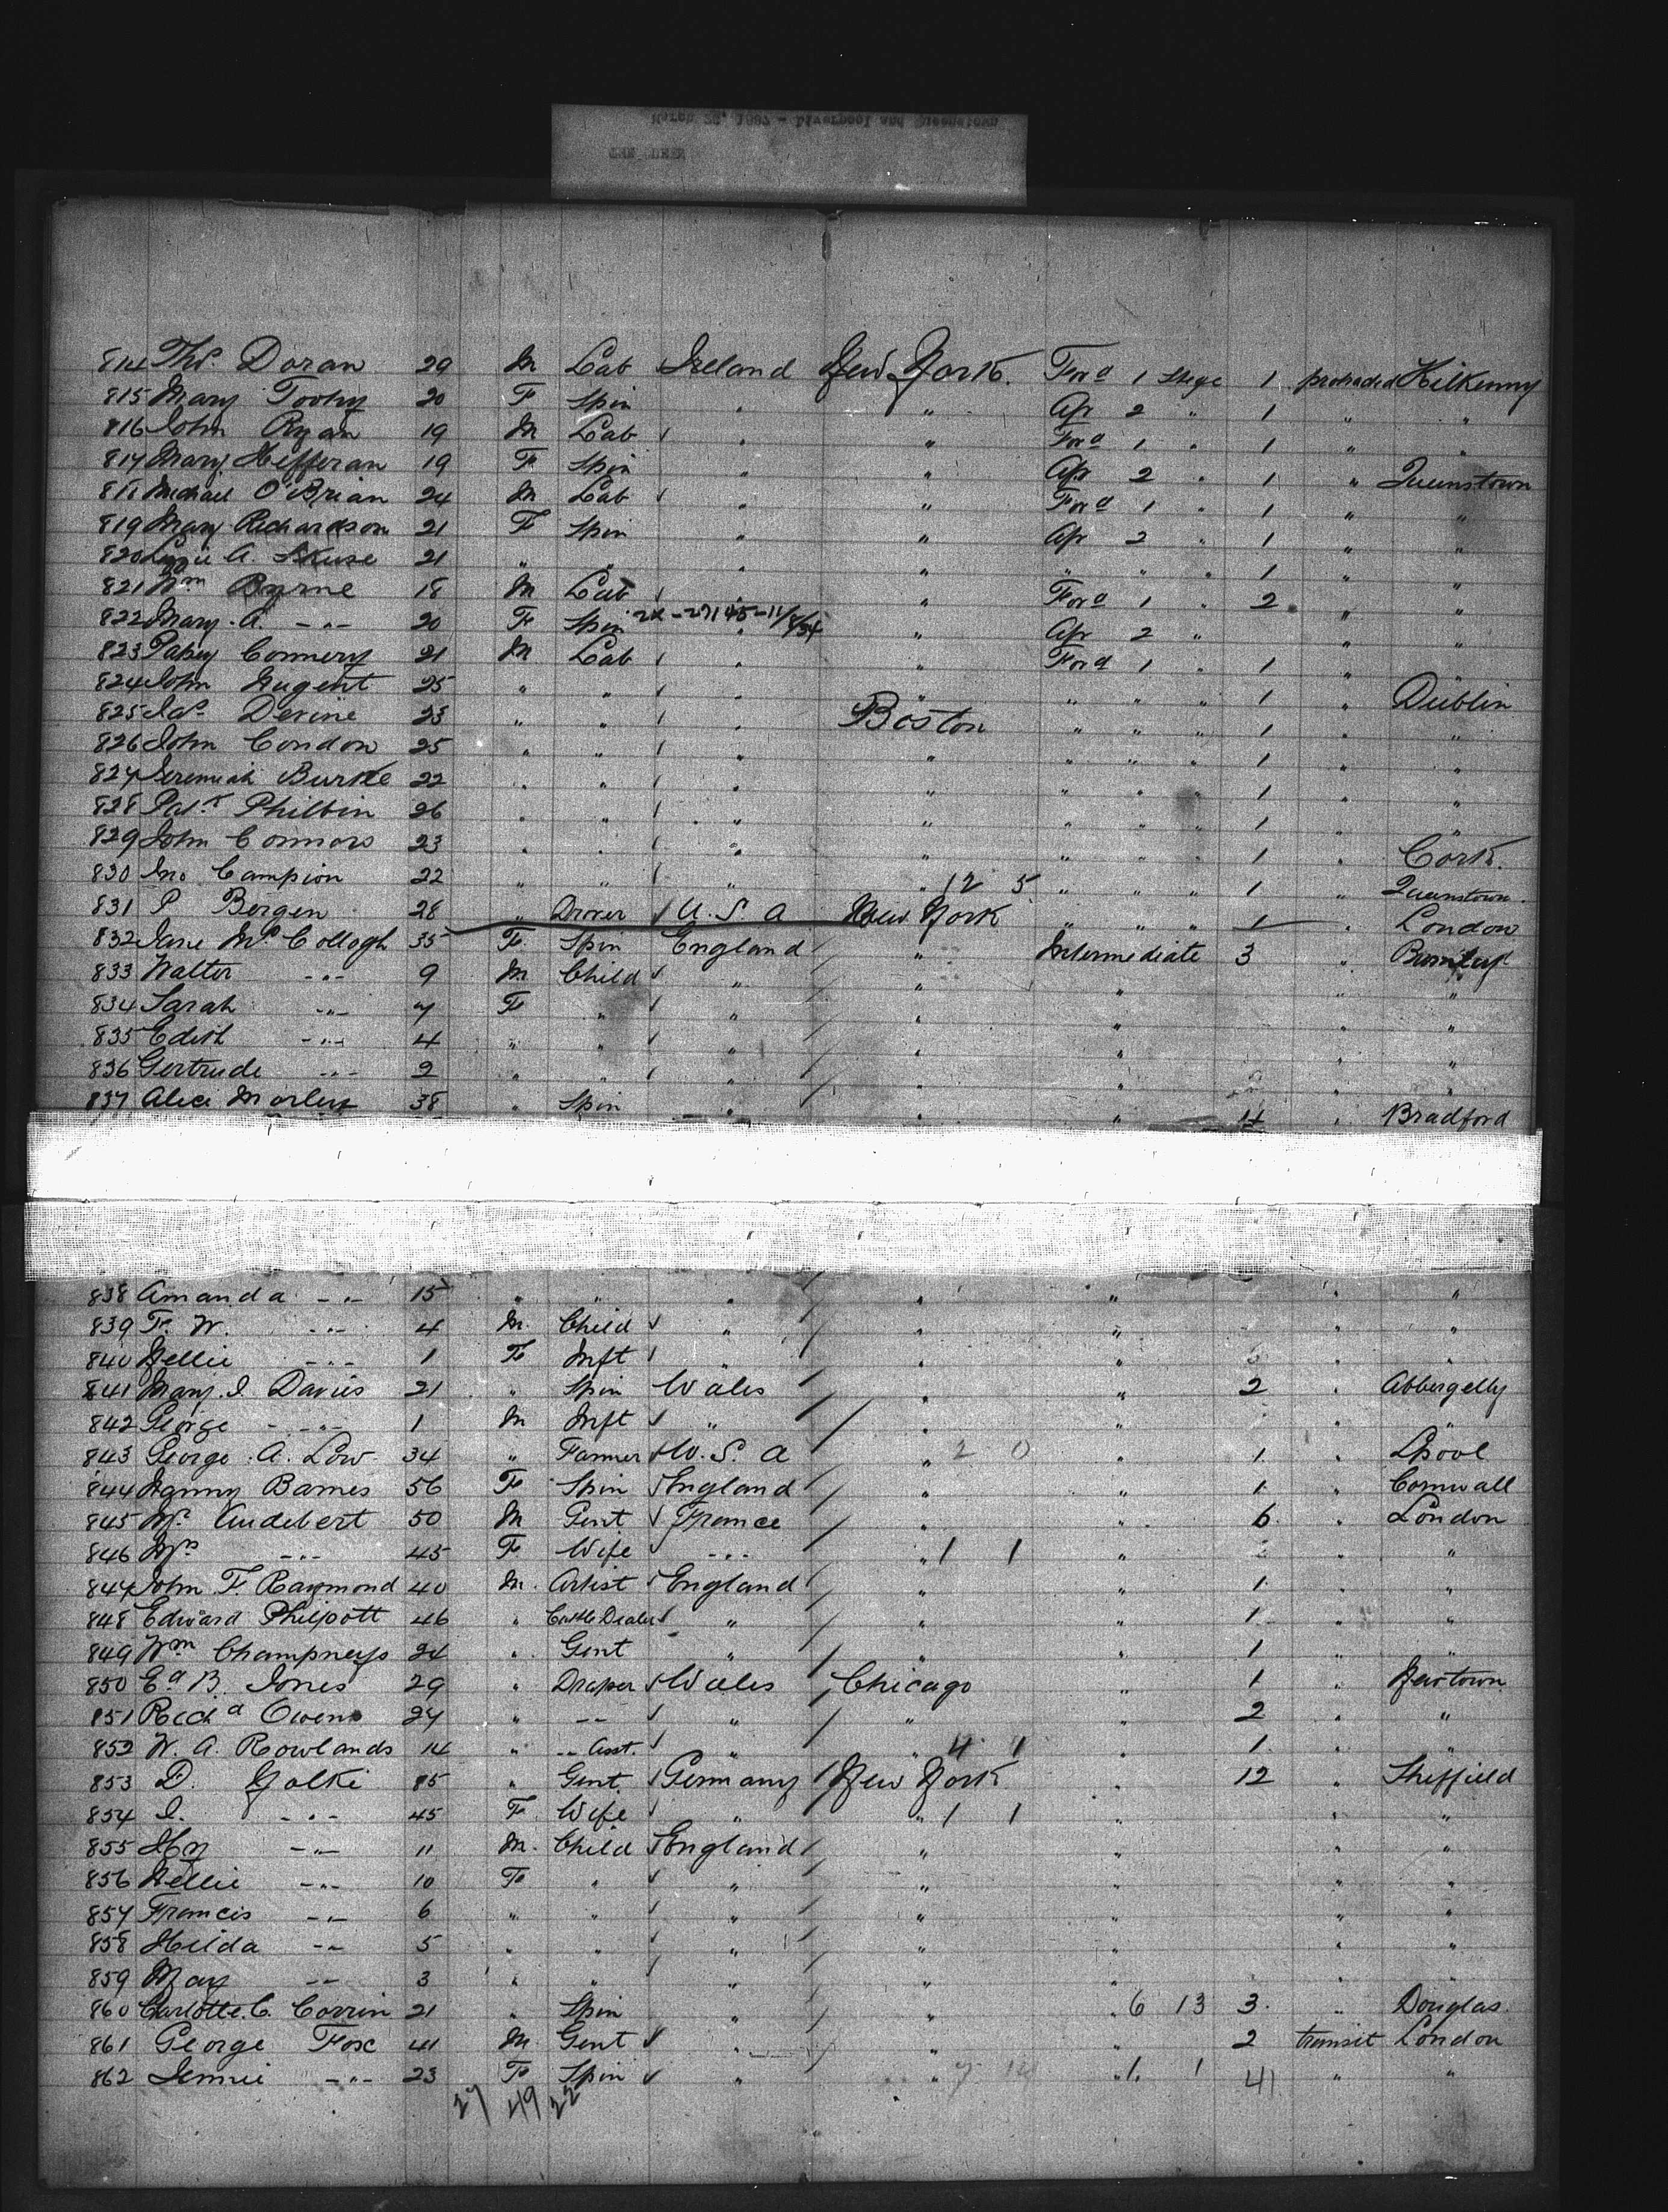 March 26, 1897 - Liverpool and Queenstown
814 Thos. Doran 29 M Lab Ireland New York. Ford 1 Stege 1 protracted Kilkenny
815 Mary Toohy 20 F Spin " " Aft 2 " 1 " "
816 John Ryan 19 M Lab " " Ford 1 " 1 " "
817 Mary Hefferan 19 F Spin " " Aft 2 " 1 " Queenstown
818 Michael O'Brian 24 M Lab " " Ford 1 " 1 " "
819 Mary Richardson 21 F Spin " " Aft 2 " 1 " "
820 Lizzie A. Skuse 21 " " " " " " " 1 " "
821 Wm Byrne 18 M Lab " " Ford 1 " 2 " "
822 Mary A. -"- 20 F Spin " " Aft 2 " " "
823 Patsy Connery 21 M Lab " " Ford 1 " 1 " "
824 John Nugent 25 " " " " " " " 1 " Dublin
825 Jas. Devine 23 " " " Boston " " " 1 " "
826 John Condon 25 " " " " " " " 1 " "
827 Jeremiah Burke 22 " " " " " " " 1 " "
828 Patk Philbin 26 " " " " " " " 1 " "
829 John Connors 23 " " " " " " " 1 " Cork.
830 Jno Campion 22 " " " " 12 5 " " " 1 " Queenstown.
831 P Bergen 28 " Drover U.S.A New York " " " 1 " London
832 Jane McCollogh 35 F Spin England " Intermediate 3 "
833 Walter -"- 9 M Child " " " " "
834 Sarah -"- 7 F " " " " " "
835 Edith -"- 4 " " " " " " "
836 Gertrude -"- 2 " " " " " " "
837 Alice Morley 38 " Spin " " " 4 " Bradford
838 Amanda -"- 15 " " " " " " "
839 F. W. -"- 4 M. Child " " " " "
840 Nellie -"- 1 F Inft " " " " "
841 Mary. J. Davies 21 " Spin Wales " " 2 " Abbergelly
842 George -"- 1 M Inft " " " " "
843 George. A. Low 34 " Farmer U.S.A " 2 0 " 1 " Lpool
844 Nanny Barnes 56 F Spin England " " 1 " Cornwall
845 Mr. Audebert 50 M Gent France " " 6 " London
846 Mrs -"- 45 F. Wife -"- " 1 1 " " "
847 John F Raymond 40 M. Artist England " " 1 " "
848 Edward Philpott 46 " Cattle Dealer " " " 1 " "
849 Wm Champneys 24 " Gent " " " 1 " "
850 Ed B. Jones 29 " Draper Wales Chicago " 1 " Newtown
851 Richd Owens 27 " -- " " " 2 " "
852 W. A. Rowlands 14 " -- Asst. " " 4 1 " 1 " "
853 D. Yolki 85 " Gent Germany New York " 12 " Sheffield
854 I. -"- 45 F. Wife " " 1 1 " " "
855 Hy -"- 11 M. Child England " " " "
856 Nellie -"- 10 F " " " " " "
857 Francis -"- 6 " " " " " " "
858 Hilda -"- 5 " " " " " " "
859 May -"- 3 " " " " " " "
860 Charlotte. C. Corrin 21 " Spin " " " 6 13 3. " Douglas
861 George Fox 41 M. Gent " " " 2 transit London
862 Jennie -"- 23 F Spin " " 7 14 " 1 1 41 " "
27 49 22